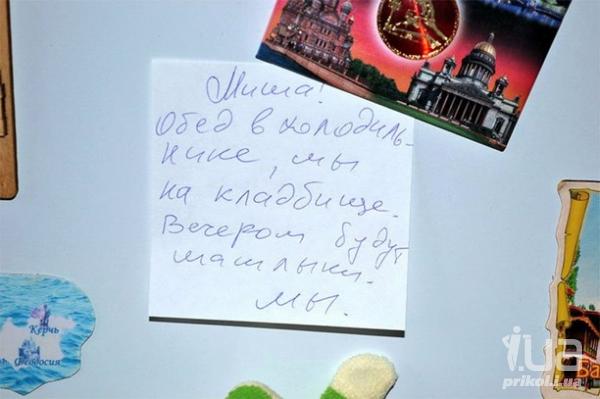 Миша!
Обед в холодиль-
нике, мы
на кладбище.
Вечером будут
шашлыки.
Мы.
Керчь
Феодосия
Ба
iUA
prikol.i.ua